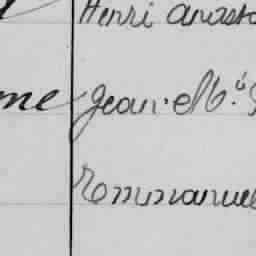 Henri Anast
me Jean-M.ie
Emmanuel